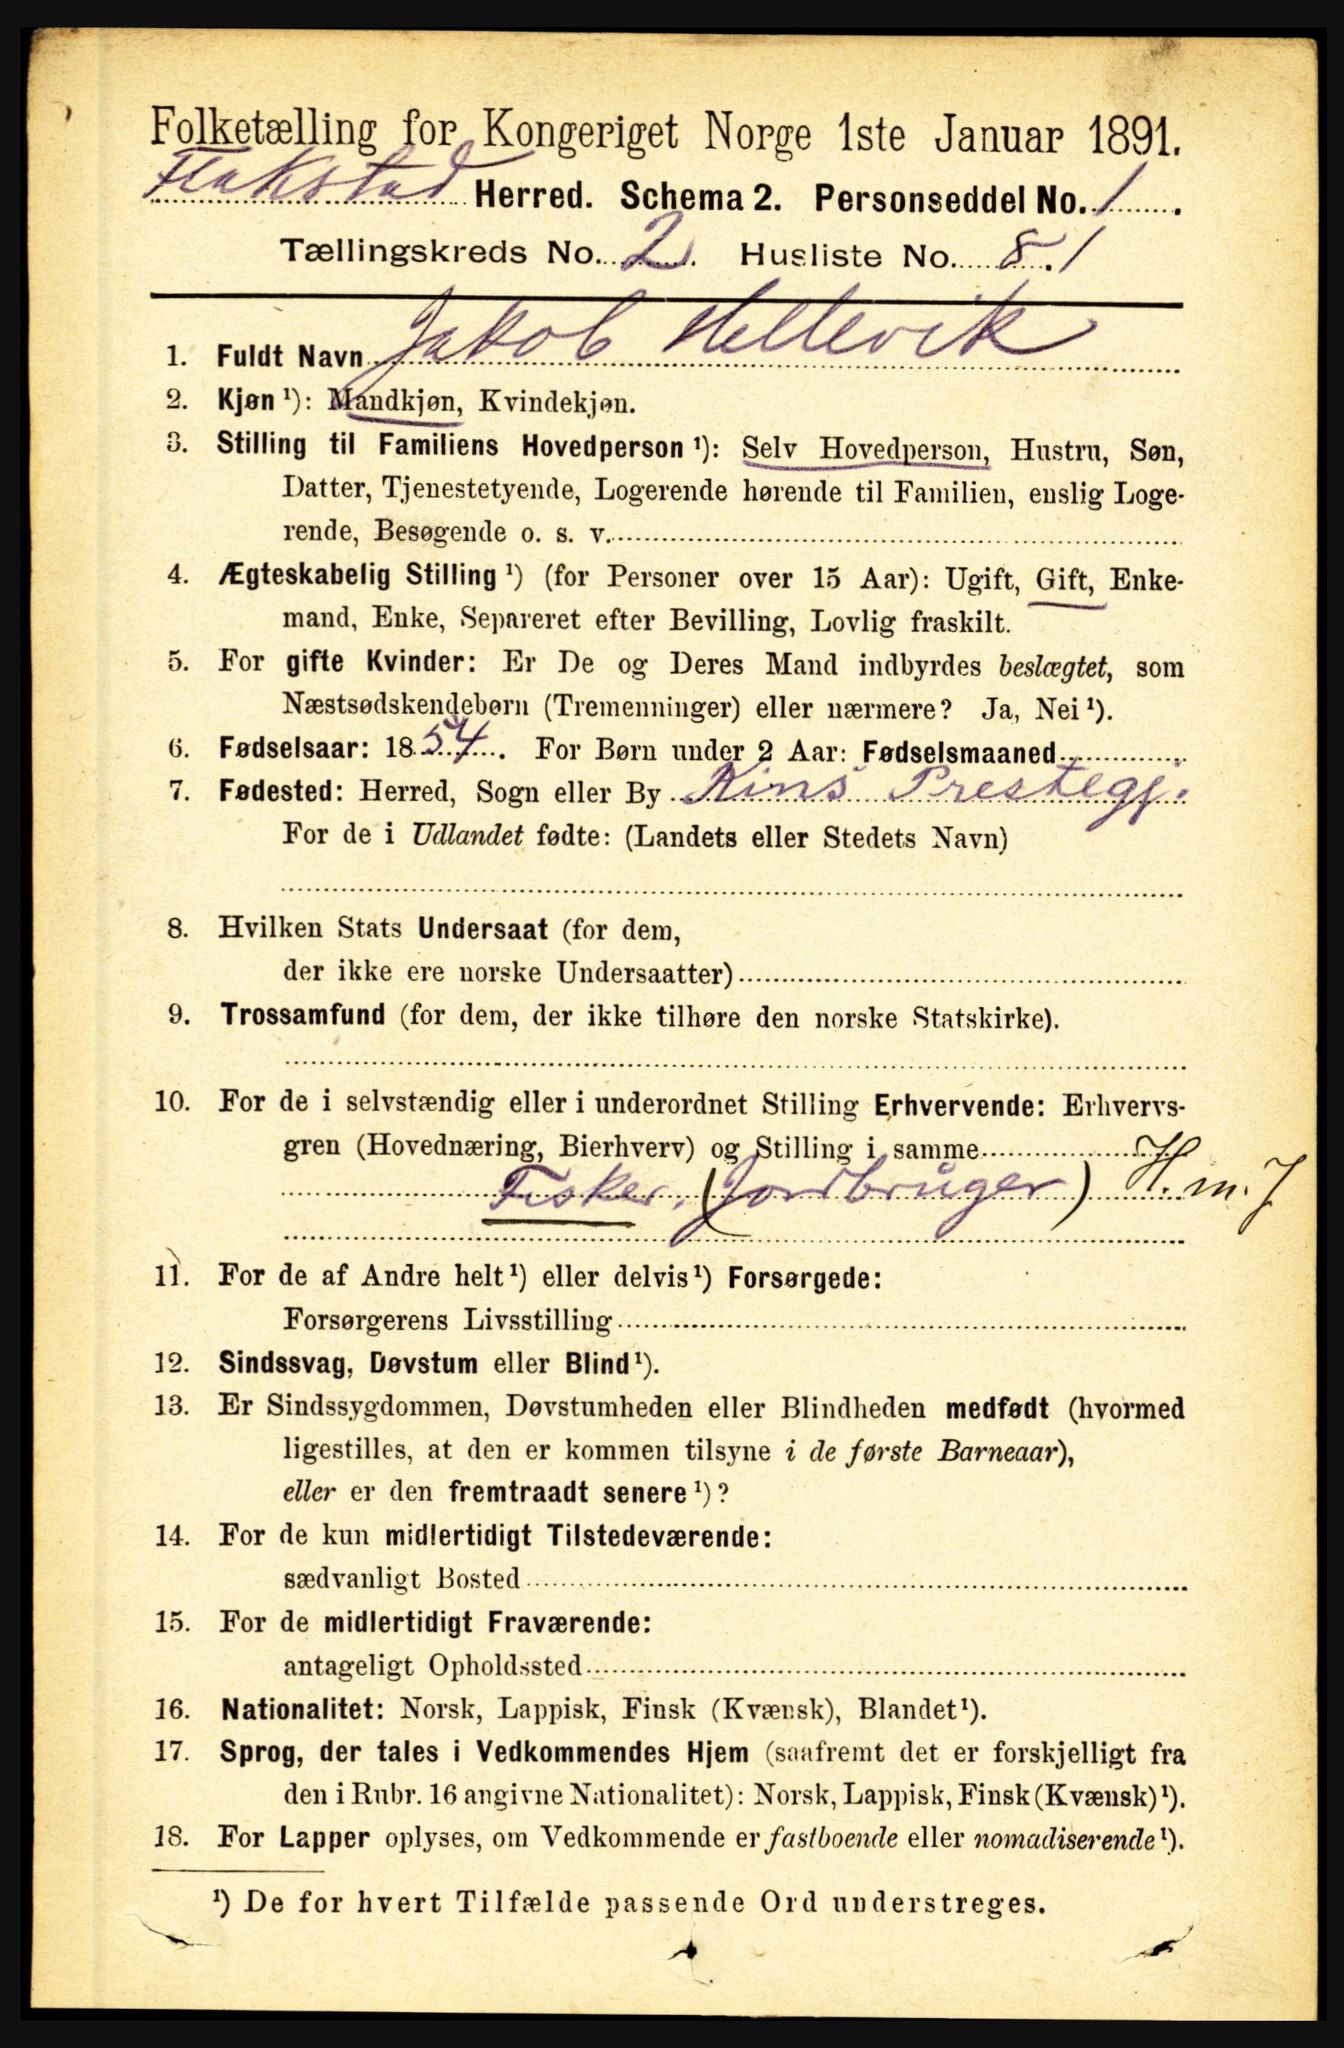 Folketælling for Kongeriget Norge 1ste Januar 1891.
Flakstad Herred. Schema 2. Personseddel No. 1.
Tællingskreds No. 2. Husliste No. 81
1. Fuldt Navn Jakob Hellevik
2. Kjøn ¹): Mandkjøn, Kvindekjøn.
3. Stilling til Familiens Hovedperson ¹): Selv Hovedperson, Hustru, Søn,
Datter, Tjenestetyende, Logerende hørende til Familien, enslig Loge-
rende, Besøgende o. s. v.
4. Ægteskabelig Stilling ¹) (for Personer over 15 Aar): Ugift, Gift, Enke-
mand, Enke, Separeret efter Bevilling, Lovlig fraskilt.
5. For gifte Kvinder: Er De og Deres Mand indbyrdes beslægtet, som
Næstsødskendebørn (Tremenninger) eller nærmere? Ja, Nei ¹).
6. Fødselsaar: 1854. For Børn under 2 Aar: Fødselsmaaned
7. Fødested: Herred, Sogn eller By Kins Prestegj.
For de i Udlandet fødte: (Landets eller Stedets Navn)
8. Hvilken Stats Undersaat (for dem,
der ikke ere norske Undersaatter)
9. Trossamfund (for dem, der ikke tilhøre den norske Statskirke).
10. For de i selvstændig eller i underordnet Stilling Erhvervende: Erhvervs-
gren (Hovednæring, Bierhverv) og Stilling i samme
Fisker. (Jordbruger) H. m. J
11. For de af Andre helt ¹) eller delvis ¹) Forsørgede:
Forsørgerens Livsstilling
12. Sindssvag, Døvstum eller Blind ¹).
13. Er Sindssygdommen, Døvstumheden eller Blindheden medfødt (hvormed
ligestilles, at den er kommen tilsyne i de første Barneaar),
eller er den fremtraadt senere ¹)?
14. For de kun midlertidigt Tilstedeværende:
sædvanligt Bosted
15. For de midlertidigt Fraværende:
antageligt Opholdssted
16. Nationalitet: Norsk, Lappisk, Finsk (Kvænsk), Blandet ¹).
17. Sprog, der tales i Vedkommendes Hjem (saafremt det er forskjelligt fra
den i Rubr. 16 angivne Nationalitet): Norsk, Lappisk, Finsk (Kvænsk) ¹).
18. For Lapper oplyses, om Vedkommende er fastboende eller nomadiserende ¹).
¹) De for hvert Tilfælde passende Ord understreges.